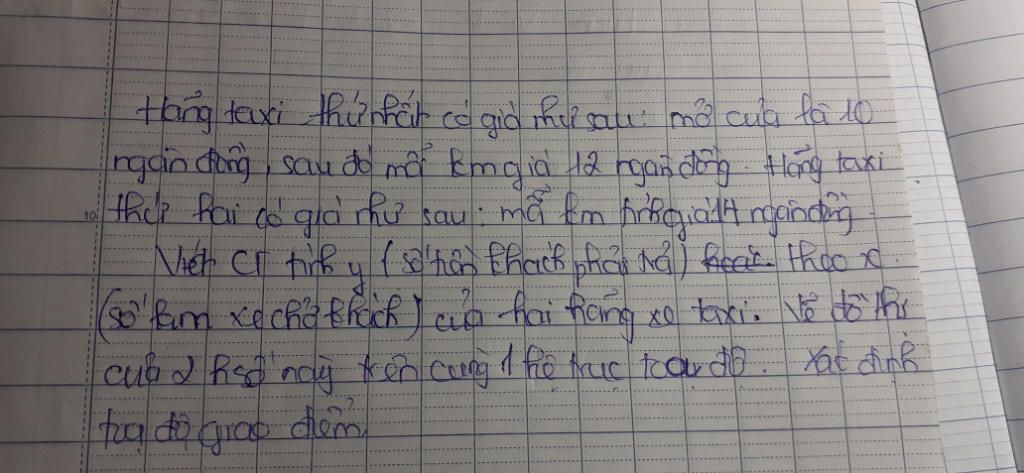 Hãng taxi thứ nhất có giá như sau: mở cửa là 10
ngàn đồng, sau đó mỗi km giá 12 ngàn đồng. Hãng taxi
thứ hai có giá như sau: mỗi km tính giá 14 ngàn đồng
Viết CT tính y (số tiền khách phải trả) theo x
(số km xe chở khách) của hai hãng xe taxi. Vẽ đồ thị
của 2 hsố này trên cùng 1 hệ trục toạ độ. Xác định
toạ độ giao điểm.